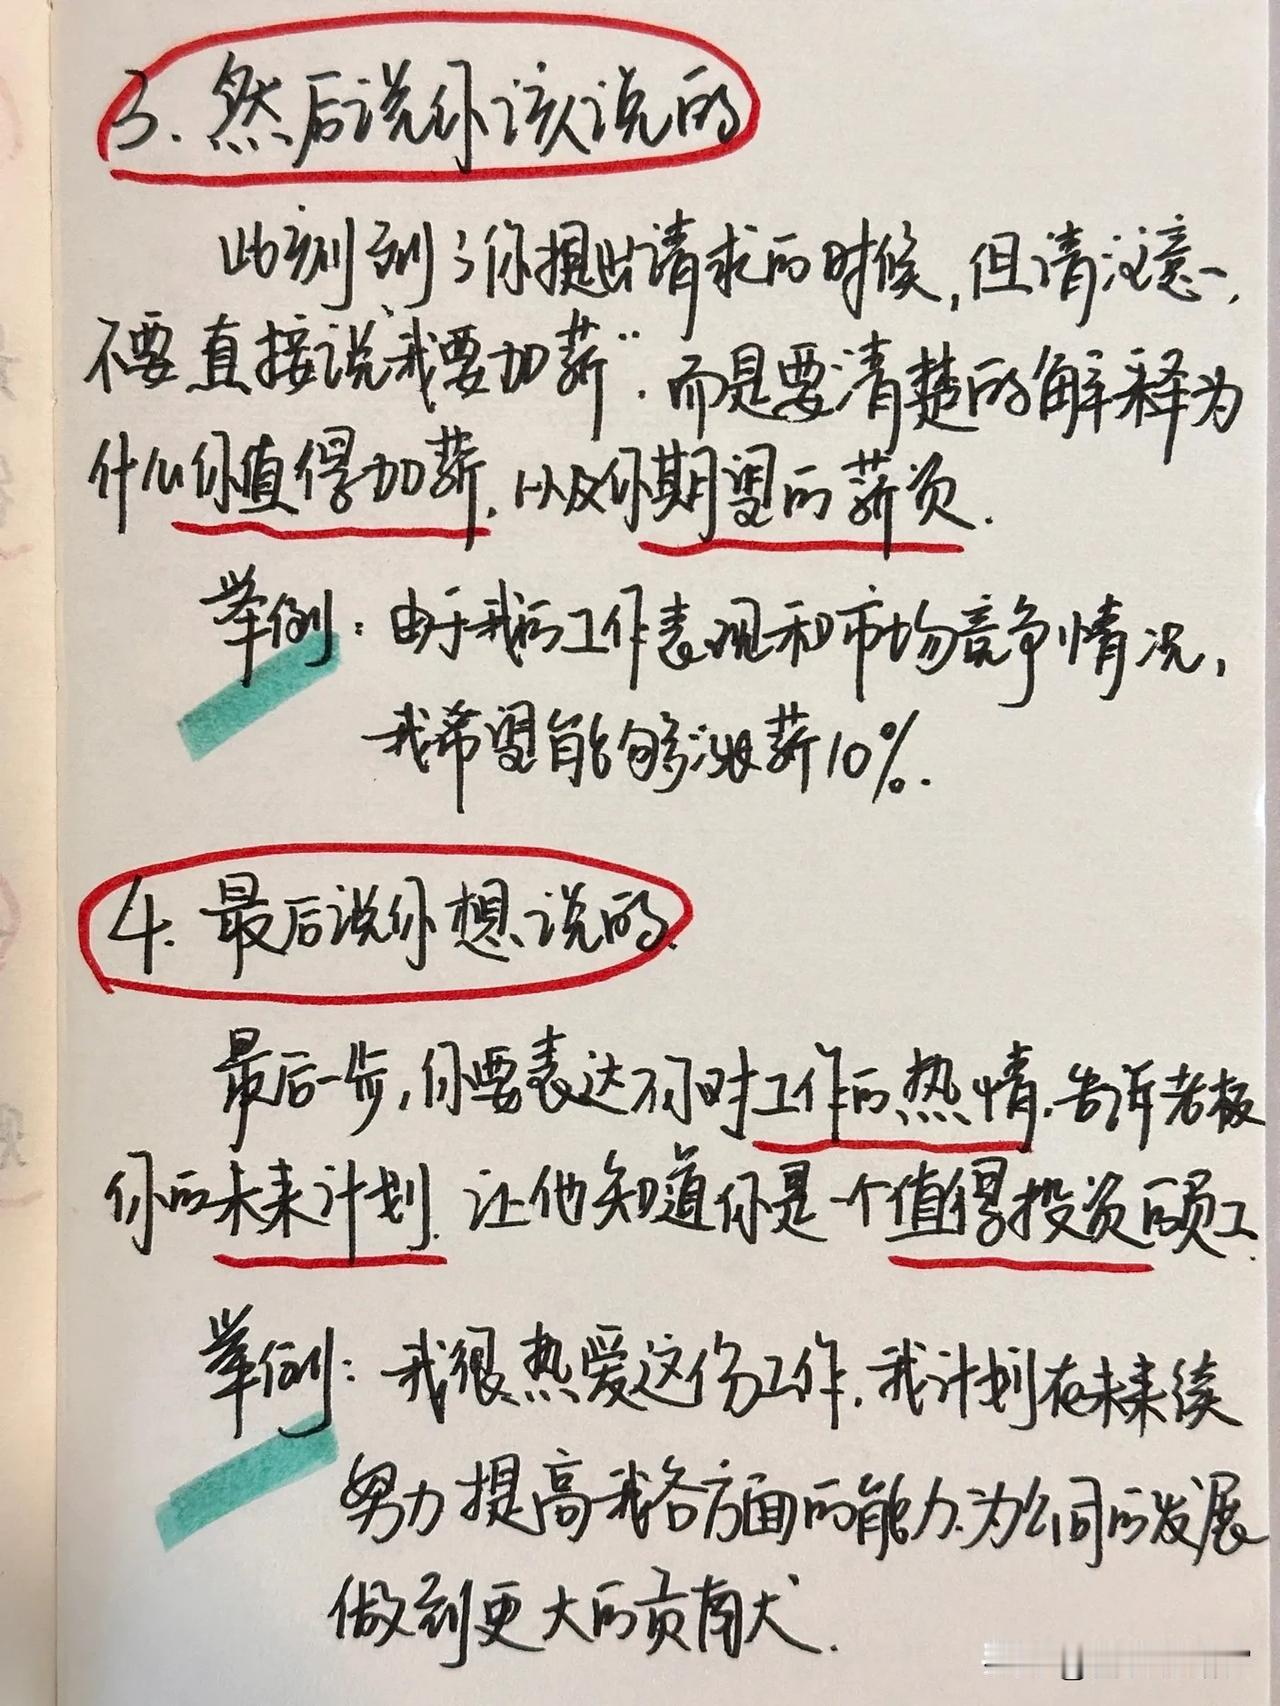 3. 然后说你该说的
此刻到了你提出请求的时候,但请注意,
不要直接说"我要加薪".而是要清楚的解释为
什么你值得加薪.以及你期望的薪资.
举例:由于我的工作表现和市场竞争情况,
我希望能够涨薪10%.
4. 最后说你想说的.
最后一步,你要表达你对工作的热情.告诉老板
你的未来计划.让他知道你是一个值得投资的员工.
举例:我很热爱这份工作.我计划在未来续
努力提高我各方面的能力.为公司的发展
做到更大的贡献.